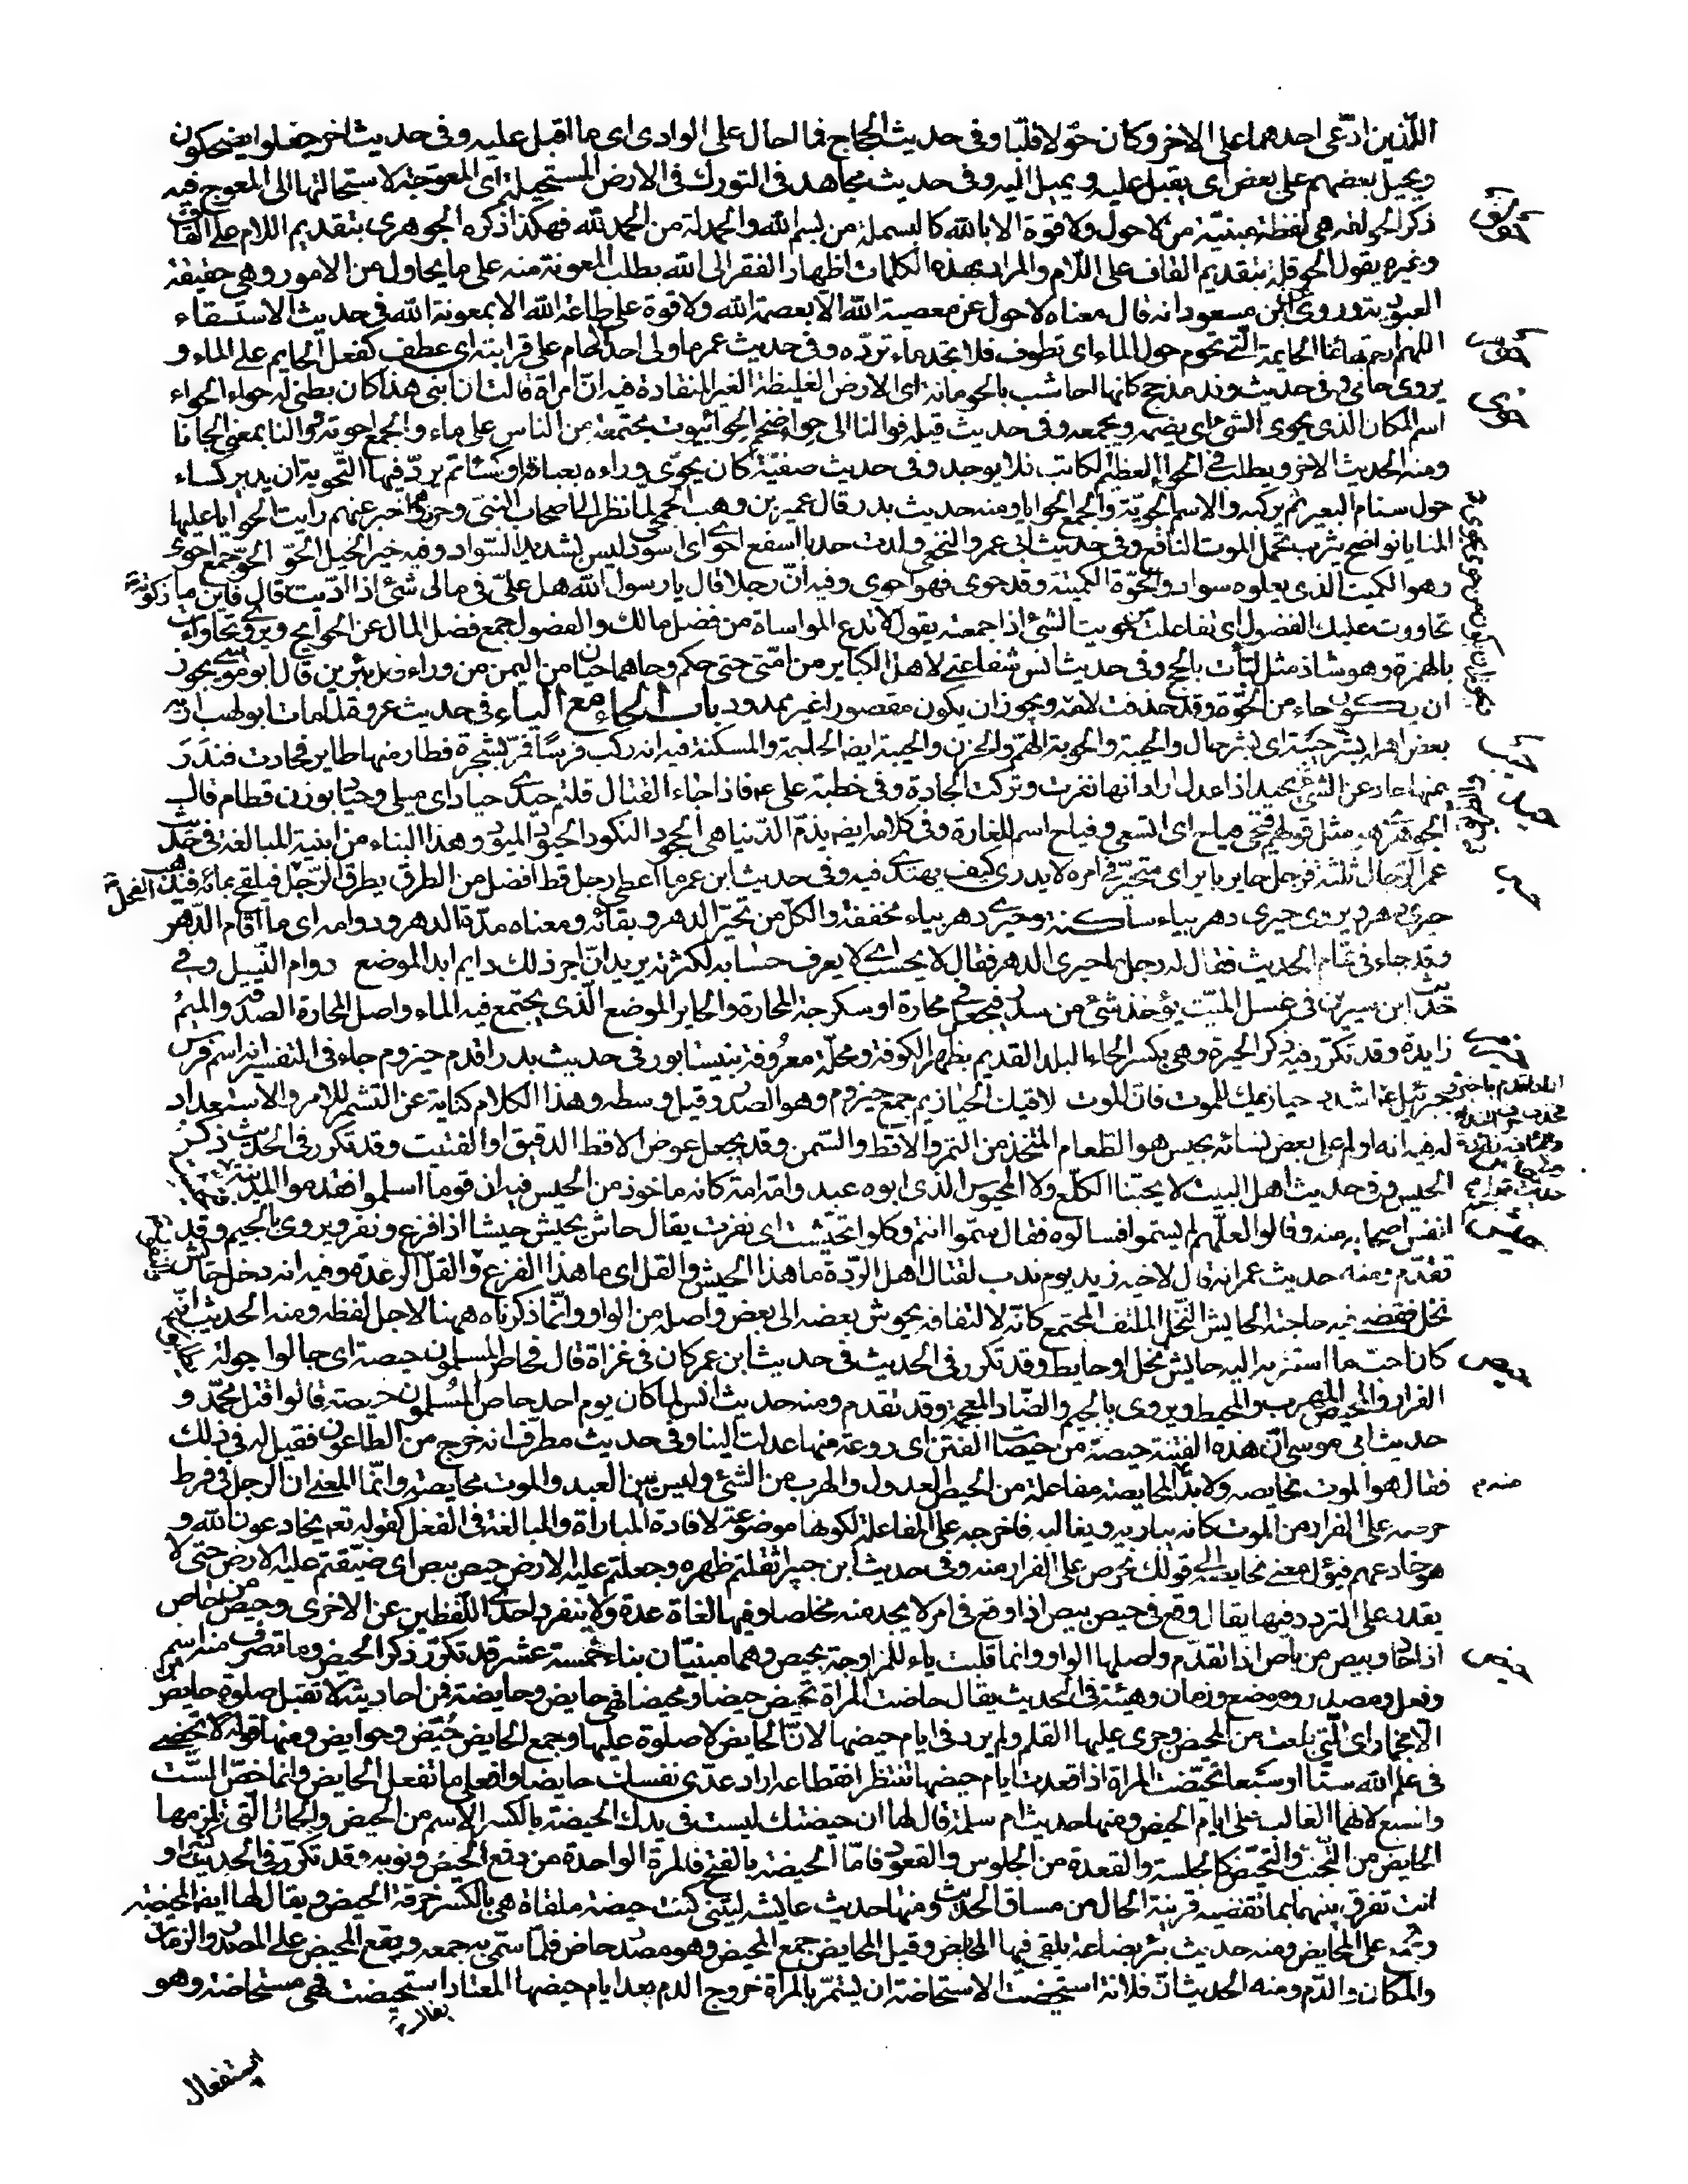 اللّذين ادّعى احدهما على الاخر وكان حوّلا قلّبا وفى حديث الحجاج فما احال على الوادى اى ما اقبل عليه وفى حديث اخر فجعلوا يضحكون
ويحيل بعضهم على بعض اى يقبل عليه ويميل اليه وفى حديث مجاهد فى التورك فى الارض المستحيلة اى المعوجّة لاستحالتها الى المعوج فيه
ذكر الحولقه هى لفظة مبنيّة من لا حول ولا قوة الا بالله كالبسملة من بسم الله والحمدلة من الحمد لله فهكذا ذكره الجوهرى بتقديم اللام على القاف
وغيره يقول الحوقلة بتقديم القاف على اللام والمراد بهذه الكلمات اظهار الفقر الى الله بطلب المعونة منه على ما يحاول من الامور وهى حقيقة
العبوديّة وروى عن ابن مسعود انه قال معناه لا حول عن معصية الله الّا بعصمة الله ولا قوة على طاعة الله الا بمعونة الله فى حديث الاستسقاء
اللهم ارحم بهائمنا الحايمة التى تحوم حول الماء اى تطوف فلا تجد ماء ترده وفى حديث عمر ما ولى احد الا حام على قرابته اى عطف كفعل الحايم على الماء و
يروى حامى فى حديث وفد مذحج كانها اخاشب بالحومانة اى الارض الغليظة الغير المنقادة فيه انّ امراة قالت ان ابنى هذا كان بطنى له حواء الحواء
اسم المكان الذى يحوى الشئ اى يضمه ويجمعه وفى حديث قيلة فوالنا الى حواء ضخم الحواء بيوت مجتمعة من الناس على ماء والجمع احوية ووالنا بمعنى لجانا
ومنه الحديث الاخر ويطلب فى الحواء العظيم الكاتب فلا يوجد وفى حديث صفيّة كان يحوّى وراءه بعباءة او كساء ثم يردفها التّحوية ان يدير كساء
حول سنام البعير ثم يركبه والاسم الحويّة والجمع الحوايا ومنه حديث بدر قال عمير بن وهب الجمحى لما نظر الى اصحاب النبى وحزرهم واخبر عنهم رايت الحوايا عليها
المنايا نواضح يثرب تحمل الموت الناقع وفى حديث ابى عمرو النخعى ولدت جديا اسفع احوى اى اسود ليس بشديد السّواد وفيه خير الخيل الحوّ الحوّ جمع احوى
وهو الكميت الذى يعلوه سواد والحوّة الكميتة وقد حوى فهو احوى وفيه انّ رجلا قال يا رسول الله هل علىّ فى مالى شئ اذا ادّيت زكوته قال فاين ما
تحاووت عليك الفضول اى تفاعلت من حويت الشئ اذا جمعته يقول لا تدع المواساة من فضل مالك والفضول جمع فضل المال عن الحوايج ويروى تحاوأت
بالهمزة وهو شاذ مثل لبّأت بالحج وفى حديث انس شفاعتى لاهل الكباير من امّتى حتى حكم وحا هما حيّان من اليمن من وراء رمل يبرين قال ابو موسى يجوز
ان يكون حاء من الحوّة وقد حذفت لامه ويجوز ان يكون مقصورا غير ممدود باب الحاء مع الياء فى حديث عروة لما مات ابو لهب اريه
بعض اهله بشرّ حيبة اى بشر حال والحيبة والحوبة الهمّ والحزن والحيبة ايضا الحاجة والمسكنة فيه انه ركب فرسا فمرّ بشجرة فطار منها طاير فحادت فندر
عنها حاد عن الشئ يحيد اذا عدل اراد انها نفرت وتركت الجادة وفى خطبة على ع فاذا جاء القتال قلتم حيدى حياد اى ميلى وحياد بوزن قطام قال
الجوهرى هو مثل قولهم فيحى فياح اى اتسعى وفياح اسم للغارة وفى كلامه ايضا يذمّ الدّنيا هى الجحود الكنود الحيود الميود وهذا البناء من ابنية المبالغة فى حديث
عمر الرّجال ثلثة فرجل حاير باير اى متحيّر فى امره لا يدرى كيف يهتدى فيه وفى حديث ابن عمر ما اعطى رجل قط افضل من الطرق يطرق الرّجل الفحل فيلقح مائة فيذهب
حيرى دهر ويروى حيرى دهر بياء ساكنة وحيرى دهر بياء مخففة والكلّ من تحيّر الدهر وبقائه ومعناه مدّة الدهر ودوامه اى ما اقام الدّهر
وقد جاء فى تمام الحديث فقال له رجل ما حيرى الدهر فقال لا يحسب اى لا يعرف حسابه لكثرته يريد انّ اجر ذلك دايم ابدا لموضع دوام النّسل وفى
حديث ابن سيرين فى غسل الميّت يؤخذ شئ من سدر فيجعل فى محارة او سكرجة المحارة والحاير الموضع الّذى يجتمع فيه الماء واصل المحارة الصدفة والميم
زايدة وقد تكرّر فيه ذكر الحيرة وهى بكسر الحاء البلد القديم بظهر الكوفة ومحلّة معروفة بنيسابور فى حديث بدر اقدم حيزوم جاء فى التفسير انه اسم فرس
جبرئيل ع اشدد حيازيمك للموت فانّ الموت لاقيك الحيازيم جمع حيزوم وهو الصدر وقيل وسطه وهذا الكلام كناية عن التشمّر للامر والاستعداد
له فيه انه اولم على بعض نسائه بحيس هو الطعام المتّخذ من التمر والاقط والسّمن وقد يجعل عوض الاقط الدقيق او الفتيت وقد تكرر فى الحديث ذكر
الحيس وفى حديث اهل البيت لا يحبّنا الكلع ولا المحيوس الذى ابوه عبد وامّه امة كانه ماخوذ من الحيس فيه ان قوما اسلموا فقدموا المدينة
انفس اصحابه منه وقالوا لعلّهم لم يسموا فسالوه فقال سمّوا انتم وكلوا تحيّشت اى نفرت يقال حاش يحيش حيشا اذا فزع ونفر ويروى بالجيم وقد
تقدّم ومنه حديث عمر انه قال لاخيه زيد يوم ندب لقتال اهل الرّدة ما هذا الحيش والقل اى ما هذا الفزع والقلّ الرّعدة وفيه انه دخل حايش
نخل فقضى فيه حاجته الحايش النّخل الملتف المجتمع كانّه لالتفافه يحوش بعضه الى بعض واصله من الواو وانّما ذكرناه ههنا لاجل لفظه ومنه الحديث انه
كان احبّ ما استتر به اليه حايش نخل او حايط وقد تكرر فى الحديث فى حديث ابن عمر كان فى غزاة قال فحاص المسلمون حيصة اى جالوا جولة
الفرار والمحيص المهرب والمحيط ويروى بالجيم والضّاد المعجمة وقد تقدم ومنه حديث انس لما كان يوم احد حاص المسلمون حيصة قالوا قتل محمّد و
حديث ابى موسى انّ هذه الفتنة حيصة من حيصات الفتن اى روغة منها عدلت الينا وفى حديث مطرّف انه خرج من الطاعون فقيل له فى ذلك
فقال هو الموت نحايصه ولا بدّ منه المحايصة مفاعلة من الحيص العدول والهرب من الشئ وليس بين العبد والموت محايصة وانّما المعنى ان الرجل فى فرط
حرصه على الفرار من الموت كانه يباريه ويغالبه فاخرجه على المفاعلة لكونها موضوعة لافادة المباراة والمبالغة فى الفعل كقوله تع يخادعون الله و
هو خادعهم فيؤل معنى نحايصه الى قولك نحرص على الفرار منه وفى حديث ابن جبير اثقلتم ظهره وجعلتم عليه الارض حيص بيص اى ضيّقتم عليه الارض حتى لا
يقدر على التردد فيها يقال وقع فى حيص بيص اذا وقع فى امر لا يجد منه مخلصا وفيها لغاة عدة ولا ينفرد احدى اللّفظين عن الاخرى وحيص من حاص
اذا حاد وبيص من باص اذا تقدّم واصلها الواو وانما قلبت ياء للمزاوجة بحيص وهما مبنيّان بناء خمسة عشر قد تكرّر ذكر الحيض وما تصرف منه من اسم
وفعل ومصدر وموضع وزمان وهيئة فى الحديث يقال حاضت المراة تحيض حيضا ومحيضا فهى حايض وحايضة فمن احاديثه لا تقبل صلوة حايض
الّا بخمار اى الّتى بلغت سن المحيض وجرى عليها القلم ولم يرد فى ايام حيضها لانّ الحايض لا صلوة عليها وجمع الحايض حُيّض وحوايض ومنها قوله تحيّضى
فى علم الله ستّا او سبعا تحيّضت المراة اذا قعدت ايام حيضها تنتظر انقطاعه اراد عدّى نفسك حايضا وافعلى ما تفعل الحايض وانما خصّ السّت
والسبع لانهما الغالب على ايام الحيض ومنها حديث ام سلمة قال لها ان حيضتك ليست فى يدك الحيضة بالكسر الاسم من الحيض والحال التى تلزمها
الحايض من التّجنّب والتحيّض كالجلسة والقعدة من الجلوس والقعود فامّا الحيضة بالفتح فالمرة الواحدة من دفع الحيض ونوبه وقد تكرّر فى الحديث كثيرا و
انت تفرق بينهما بما تقتضيه قرينة الحال من مساق الحديث ومنها حديث عايشة ليتنى كنت حيضة ملقاة هى بالكسر خرقة الحيض ويقال لها ايضا المحيضة
وتجمع على المحايض ومنه حديث بئر بضاعة يلقى فيها المحايض وقيل المحايض جمع المحيض وهو مصدر حاض فلمّا سمّى به جمعه ويقع المحيض على المصدر والزمان
والمكان والدّم ومنه الحديث انّ فلانة استحيضت الاستحاضة ان يستمرّ بالمراة خروج الدم بعد ايام حيضها المعتاد يقال استحيضت فهى مستحاضة وهو
استفعال
حولق
حوم
حوى
حيب
حيد
حير
حيزم
حيس
حيش
حيص
حيض